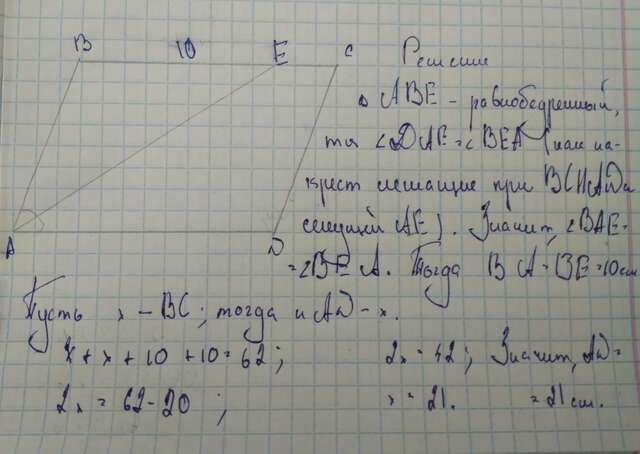 B 10 E C Решение
△ ABE - равнобедренный,
тк ∠DAE=∠BEA (как на-
крест лежащие при BC||AD и
секущей AE). Значит, ∠BAE=
A D
=∠BEA. Тогда BA=BE=10см
Пусть x - BC; тогда и AD - x.
x + x + 10 + 10 = 62; 2x = 42; Значит, AD=
2x = 62-20; x = 21. = 21 см.